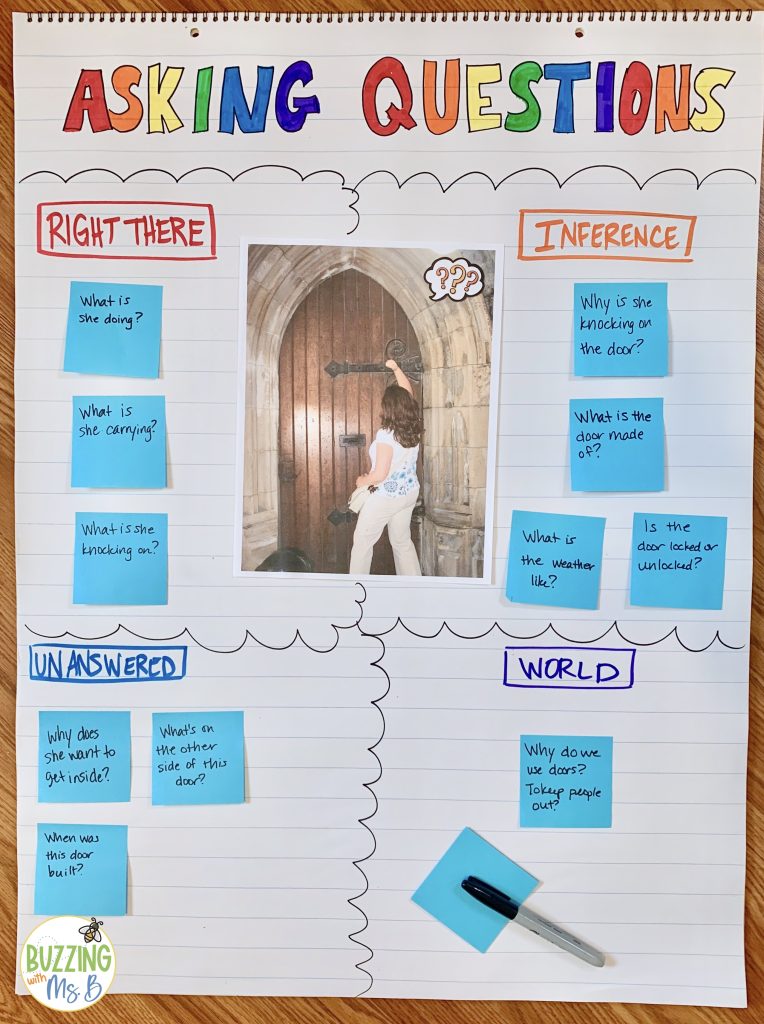 ASKING QUESTIONS
RIGHT THERE
What is
she doing?
What is
she carrying?
What is she
knocking on?
???
INFERENCE
Why is she
knocking on
the door?
What is the
door made
of?
What is
the weather
like?
Is the
door locked or
unlocked?
UNANSWERED
Why does
she want to
get inside?
What's on
the other
side of this
door?
When was
this door
built?
WORLD
Why do we
use doors?
To keep people
out?
BUZZING
with
Ms. B